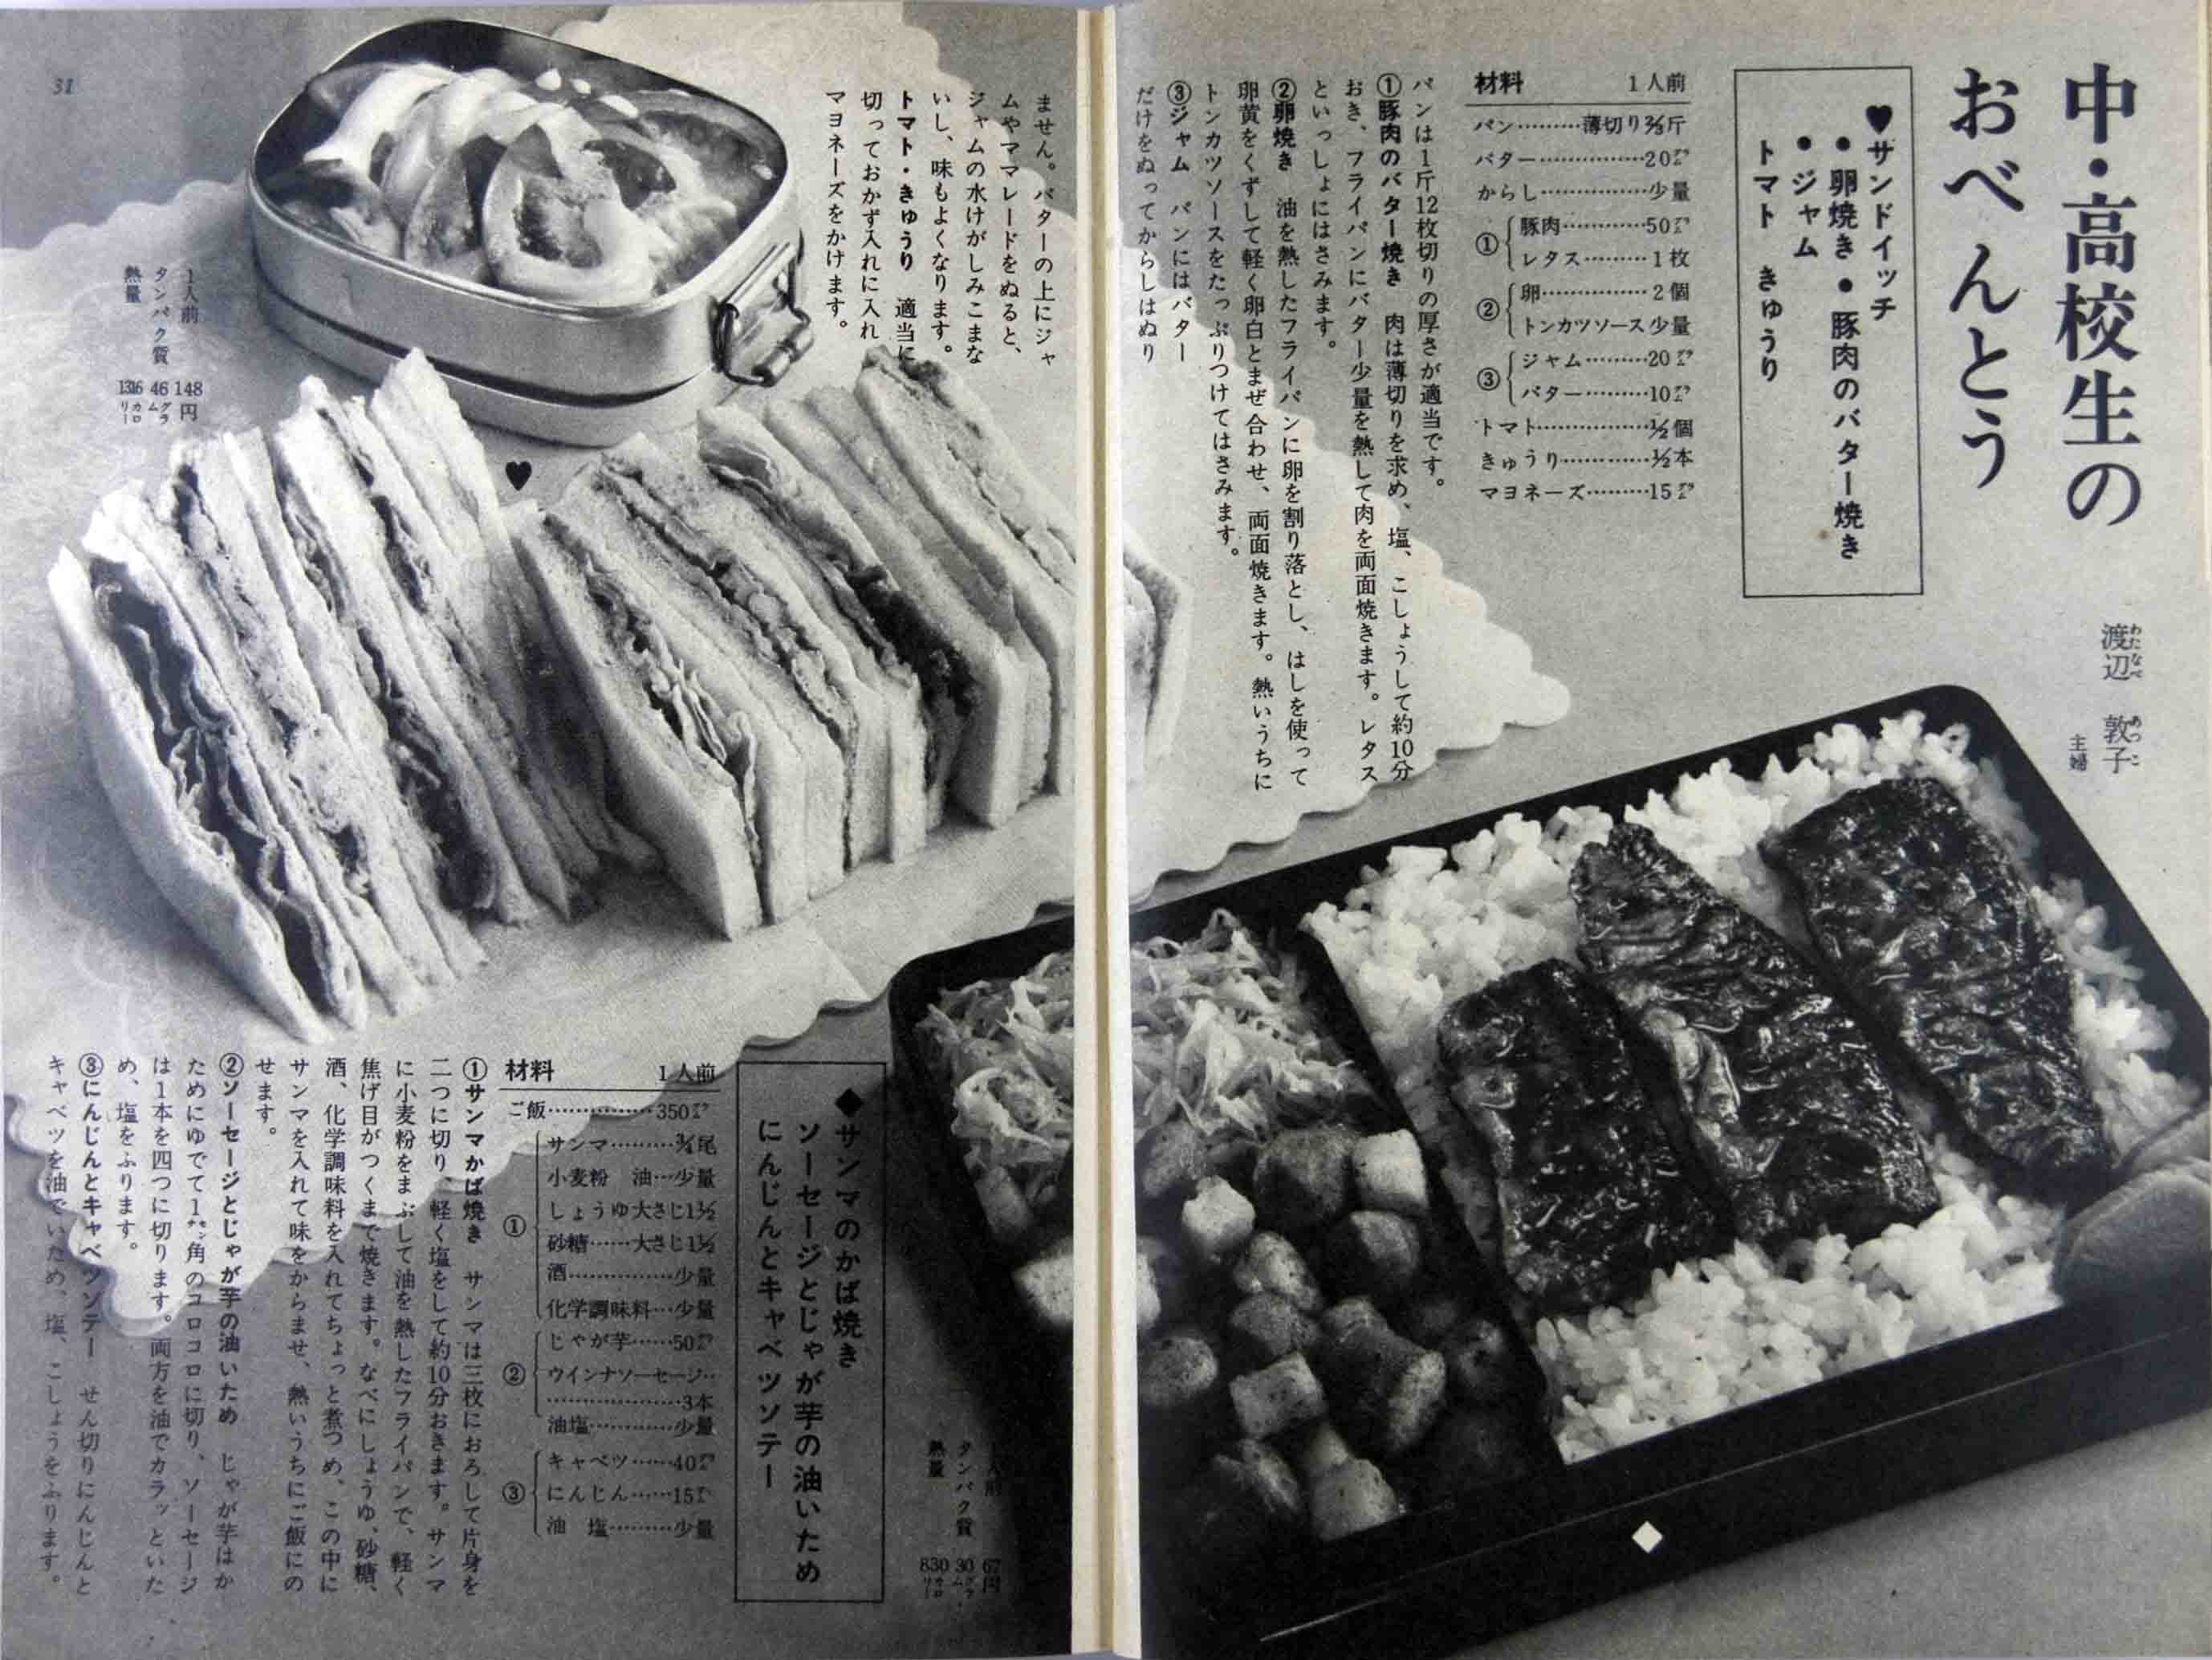 中・高校生の
おべんとう
渡辺 敦子
わたなべ あつこ
主婦
♥サンドイッチ
●卵焼き●豚肉のバター焼き
●ジャム
トマト きゅうり
材料 1人前
パン………薄切り⅔斤
バター……………20㌘
からし……………少量
① 豚肉…………50㌘
レタス………1枚
② 卵……………2個
トンカツソース少量
③ ジャム………20㌘
バター………10㌘
トマト……………½個
きゅうり…………½本
マヨネーズ………15㌘
パンは1斤12枚切りの厚さが適当です。
①豚肉のバター焼き 肉は薄切りを求め、塩、こしょうして約10分
おき、フライパンにバター少量を熱して肉を両面焼きます。レタス
といっしょにはさみます。
②卵焼き 油を熱したフライパンに卵を割り落とし、はしを使って
卵黄をくずして軽く卵白とまぜ合わせ、両面焼きます。熱いうちに
トンカツソースをたっぷりつけてはさみます。
③ジャム パンにはバター
だけをぬってからしはぬり
ません。バターの上にジャ
ムやママレードをぬると、
ジャムの水けがしみこまな
いし、味もよくなります。
トマト・きゅうり 適当に
切っておかず入れに入れ
マヨネーズをかけます。
1人前 148円
タンパク質 46グラム
熱量 1316カロリー
31
♥
◆サンマのかば焼き
ソーセージとじゃが芋の油いため
にんじんとキャベツソテー
材料 1人前
ご飯……………350㌘
① サンマ………¾尾
小麦粉 油…少量
しょうゆ大さじ1½
砂糖……大さじ1½
酒……………少量
化学調味料…少量
② じゃが芋……50㌘
ウインナソーセージ‥
……………3本
油塩…………少量
③ キャベツ……40㌘
にんじん……15㌘
油 塩………少量
①サンマかば焼き サンマは三枚におろして片身を
二つに切り、軽く塩をして約10分おきます。サンマ
に小麦粉をまぶして油を熱したフライパンで、軽く
焦げ目がつくまで焼きます。なべにしょうゆ、砂糖、
酒、化学調味料を入れてちょっと煮つめ、この中に
サンマを入れて味をからませ、熱いうちにご飯にの
せます。
②ソーセージとじゃが芋の油いため じゃが芋はか
ためにゆでて1㌢角のコロコロに切り、ソーセージ
は1本を四つに切ります。両方を油でカラッといた
め、塩をふります。
③にんじんとキャベツソテー せん切りにんじんと
キャベツを油でいため、塩、こしょうをふります。
1人前 67円
タンパク質 30グラム
熱量 830カロリー